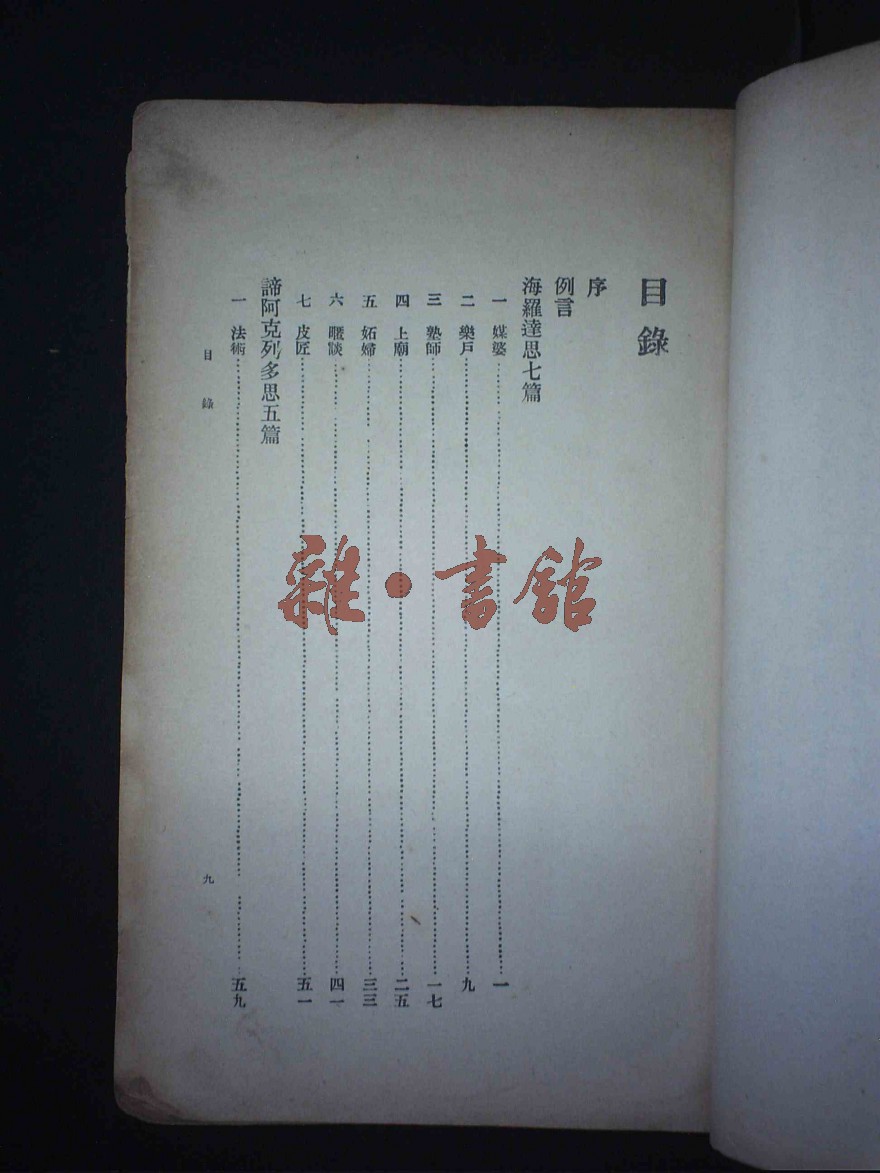 目錄
序
例言
海羅達思七篇
一 媒婆……一
二 樂戶……九
三 塾師……一七
四 上廟……二五
五 妬婦……三三
六 暱談……四一
七 皮匠……五一
諦阿克列多思五篇
一 法術……五九
目錄 九
雜·書館